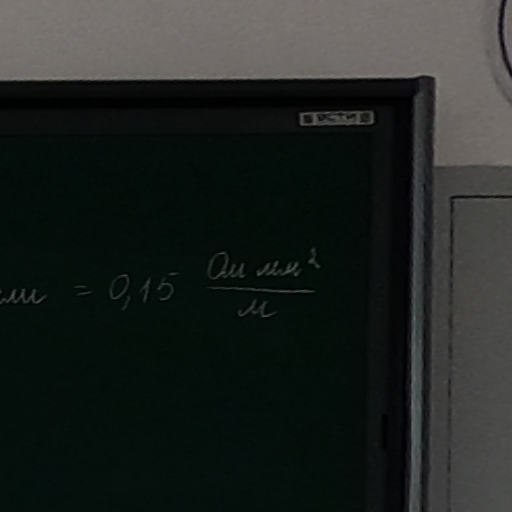 = 0,15 Ом мм²
м